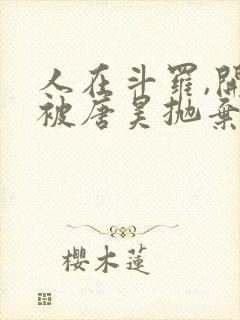 人在斗羅,開
被唐昊拋棄
櫻木蓮